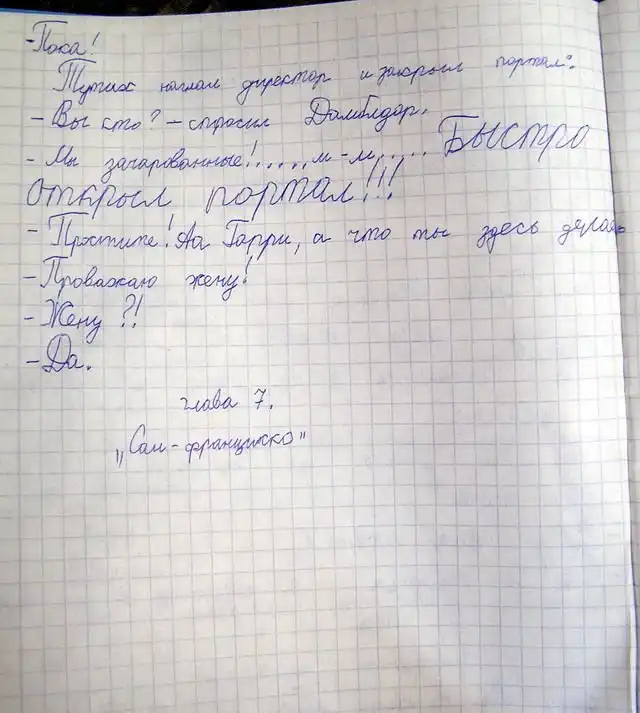 - Пока!
Тут их нашел директор и закрыл портал:
- Вы кто? - спросил Дамблдор.
- Мы зачарованные!.....м-м..... Быстро
открыл портал!!!
- Простите! Аа Гарри, а что ты здесь делаешь
- Проважаю жену!
- Жену?!
- Да.
глава 7.
„Сан-франциско"